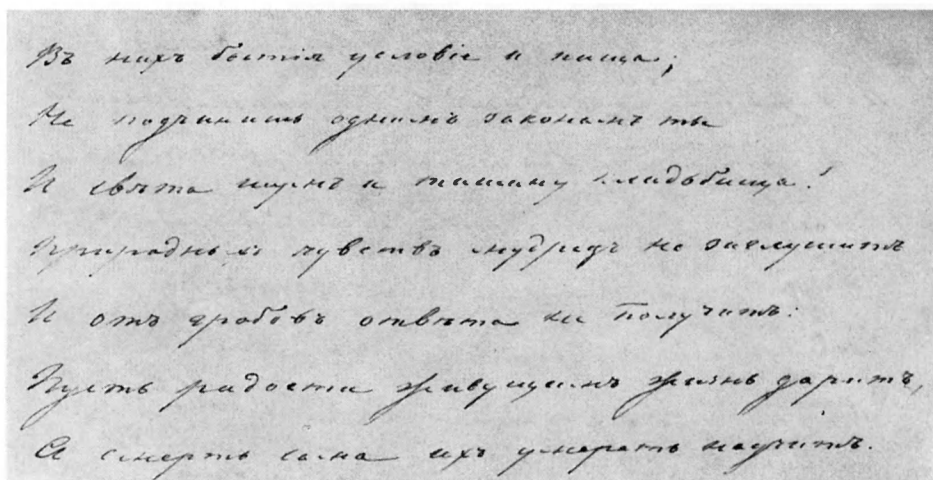 Въ нихъ бытія условіе и пища;
Не подчинишь однимъ законамъ ты
И свѣта шумъ и тишину кладбища!
Природныхъ чувствъ мудрецъ не заглушитъ
И отъ гробовъ отвѣта не получитъ:
Пусть радости живущимъ жизнь даритъ,
А смерть сама ихъ умереть научитъ.